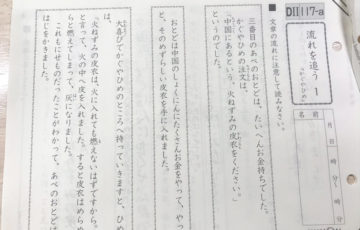 DⅡ117-a
流れを追う 1
(かぐやひめ)
名前
月 日
時 分
時 分
■ 文章の流れに注意して読みなさい。
三番目のあべのおとどは、たいへんお金持ちでした。
かぐやひめの注文は、
「中国にあるという、火ねずみの皮衣をください。」
というのでした。
おとどは中国のしょくにんにたくさんお金をやって、やっ
と、そのめずらしい皮衣を手に入れました。
大喜びでかぐやひめのところへ持っていきますと、ひめ
は、
「火ねずみの皮衣は、火に入れても燃えないはずですから。」
と言って、火の中へ皮を入れました。すると皮衣はめらめ
らと燃えてしまって、灰になりました。
これもにせものだったことがわかって、あべのおとどは
はじをかきました。